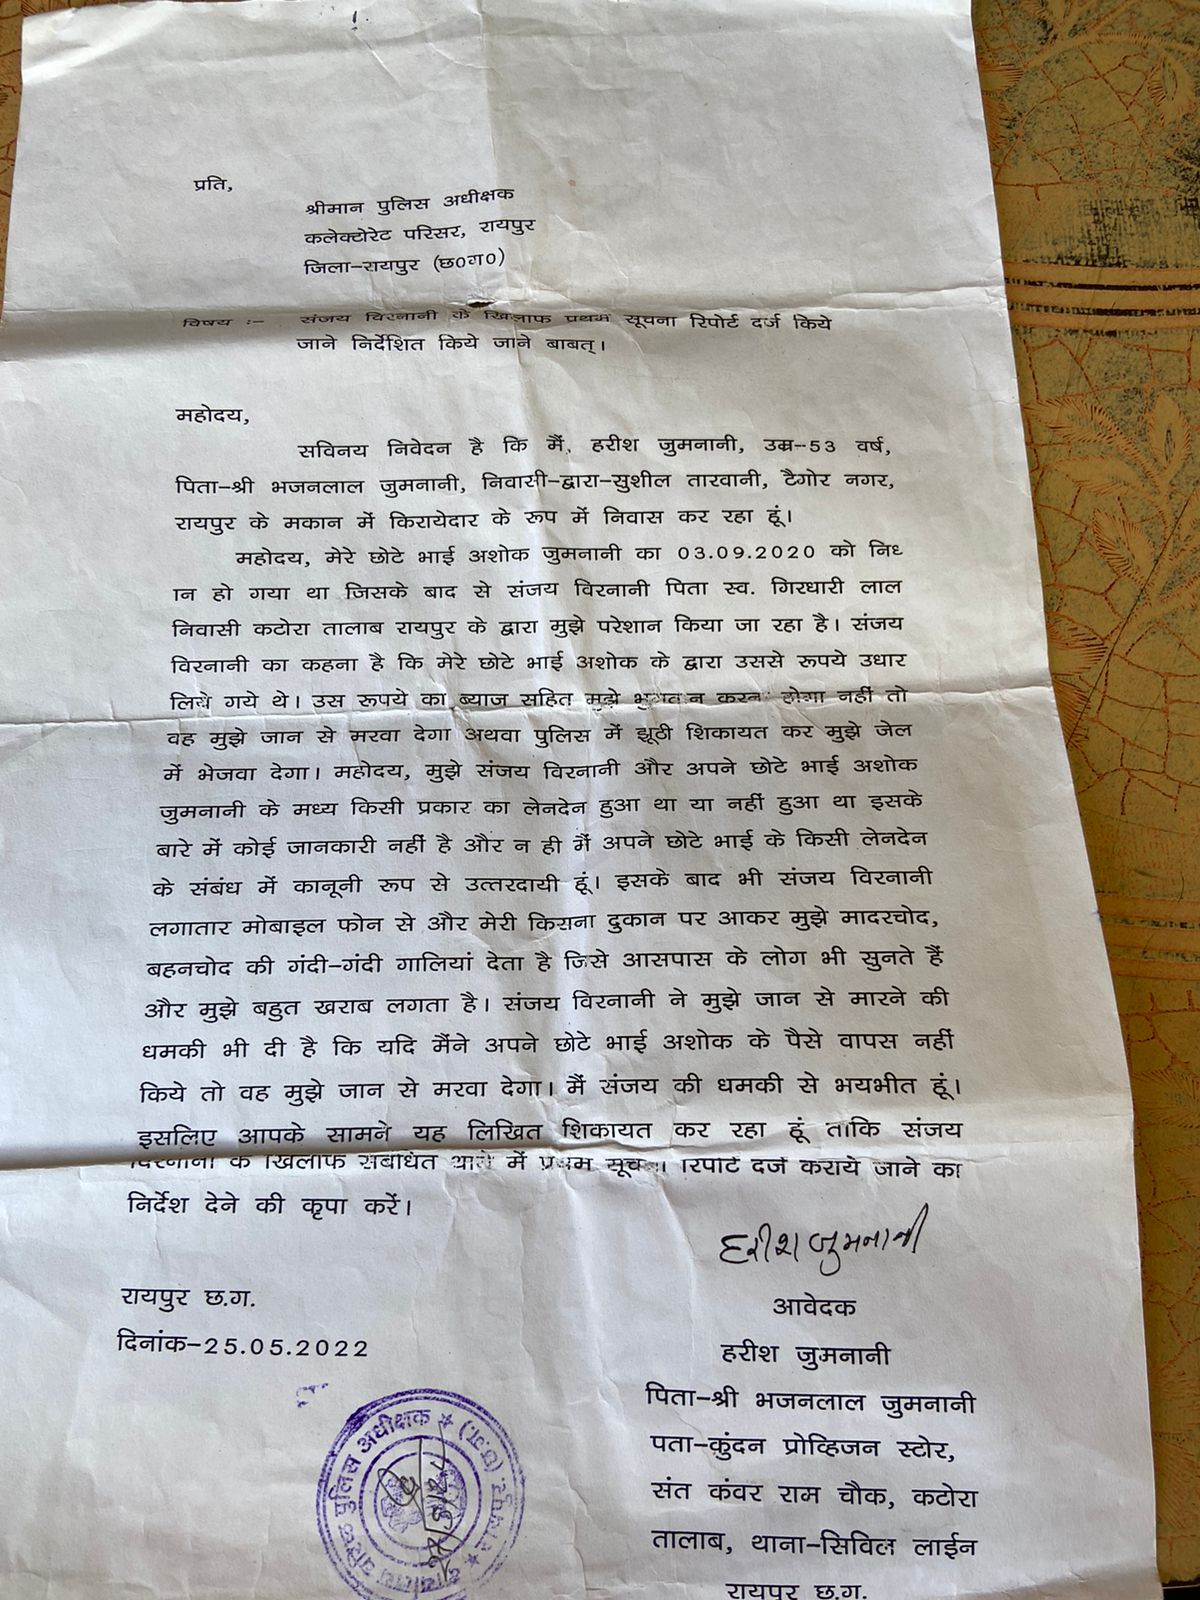 प्रति,
श्रीमान पुलिस अधीक्षक
कलेक्टोरेट परिसर, रायपुर
जिला–रायपुर (छ0ग0)
विषय :– संजय विरनानी के खिलाफ प्रथम सूचना रिपोर्ट दर्ज किये
जाने निर्देशित किये जाने बाबत्।
महोदय,
सविनय निवेदन है कि मैं, हरीश जुमनानी, उम्र–53 वर्ष,
पिता–श्री भजनलाल जुमनानी, निवासी–द्वारा–सुशील तारवानी, टैगोर नगर,
रायपुर के मकान में किरायेदार के रूप में निवास कर रहा हूं।
महोदय, मेरे छोटे भाई अशोक जुमनानी का 03.09.2020 को निध
ान हो गया था जिसके बाद से संजय विरनानी पिता स्व. गिरधारी लाल
निवासी कटोरा तालाब रायपुर के द्वारा मुझे परेशान किया जा रहा है। संजय
विरनानी का कहना है कि मेरे छोटे भाई अशोक के द्वारा उससे रूपये उधार
लिये गये थे। उस रूपये का ब्याज सहित मुझे भुगतान करना होगा नहीं तो
वह मुझे जान से मरवा देगा अथवा पुलिस में झूठी शिकायत कर मुझे जेल
में भेजवा देगा। महोदय, मुझे संजय विरनानी और अपने छोटे भाई अशोक
जुमनानी के मध्य किसी प्रकार का लेनदेन हुआ था या नहीं हुआ था इसके
बारे में कोई जानकारी नहीं है और न ही मैं अपने छोटे भाई के किसी लेनदेन
के संबंध में कानूनी रूप से उत्तरदायी हूं। इसके बाद भी संजय विरनानी
लगातार मोबाइल फोन से और मेरी किराना दुकान पर आकर मुझे मादरचोद,
बहनचोद की गंदी–गंदी गालियां देता है जिसे आसपास के लोग भी सुनते हैं
और मुझे बहुत खराब लगता है। संजय विरनानी ने मुझे जान से मारने की
धमकी भी दी है कि यदि मैंने अपने छोटे भाई अशोक के पैसे वापस नहीं
किये तो वह मुझे जान से मरवा देगा। मैं संजय की धमकी से भयभीत हूं।
इसलिए आपके सामने यह लिखित शिकायत कर रहा हूं ताकि संजय
विरनानी के खिलाफ संबंधित थाने में प्रथम सूचना रिपोर्ट दर्ज कराये जाने का
निर्देश देने की कृपा करें।
हरीश जुमनानी
रायपुर छ.ग.
आवेदक
दिनांक–25.05.2022
हरीश जुमनानी
पिता–श्री भजनलाल जुमनानी
पता–कुंदन प्रोव्हिजन स्टोर,
संत कंवर राम चौक, कटोरा
तालाब, थाना–सिविल लाईन
रायपुर छ.ग.
कार्यालय वरिष्ठ पुलिस अधीक्षक ★ रायपुर (छ.ग.) ★